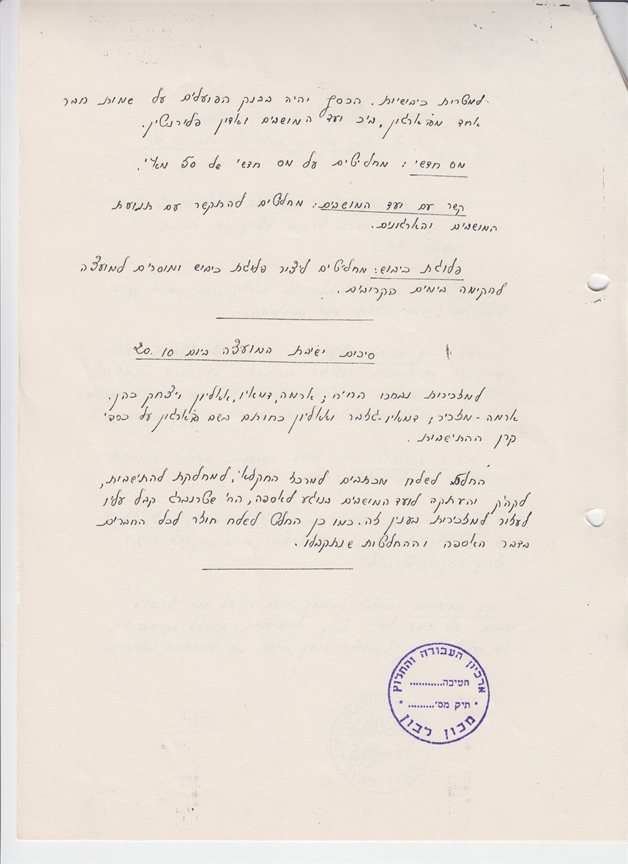 למטרות כיבושיות. הכסף יהיה בבנק הפועלים על שמות חבר
אחד מהארגון, ב"כ ועד המושבים ואדין פלורנטין.
מס חדשי: מחליטים על מס חדשי של 50 מא"י.
קשר עם ועד המושבים: מחלטים להתקשר עם תנועת
המושבים והארגונים.
פלוגת כיבוש: מחליטים ליצור פלוגת כיבוש ומוסרים למועצה
להקימה בימים הקרובים.
סיכום ישיבת המועצה ביום 20.10
למזכירות נבחרו החי"ח; ארמה, דמאיו, אאליון ויצחק כהן.
ארמה - מזכיר; דמאיו - גזבר ואאליון כחותם בשם הארגון על כספי
קרן ההתישבות.
החלט לשלח מכתבים למרכז החקלאי, למחלקת להתישבות,
לקה"ק והעתקה לועד המושבים בנוגע לאספה, הח' שטרנברג קבל עליו
לעזור למזכירות בענין זה. כמו כן החלט לשלח חוזר לכל החברים
בדבר האספה וההחלטות שנתקבלו.
ארכיון העבודה והחלוץ
חטיבה...........
תיק מס'.........
מכון לבון